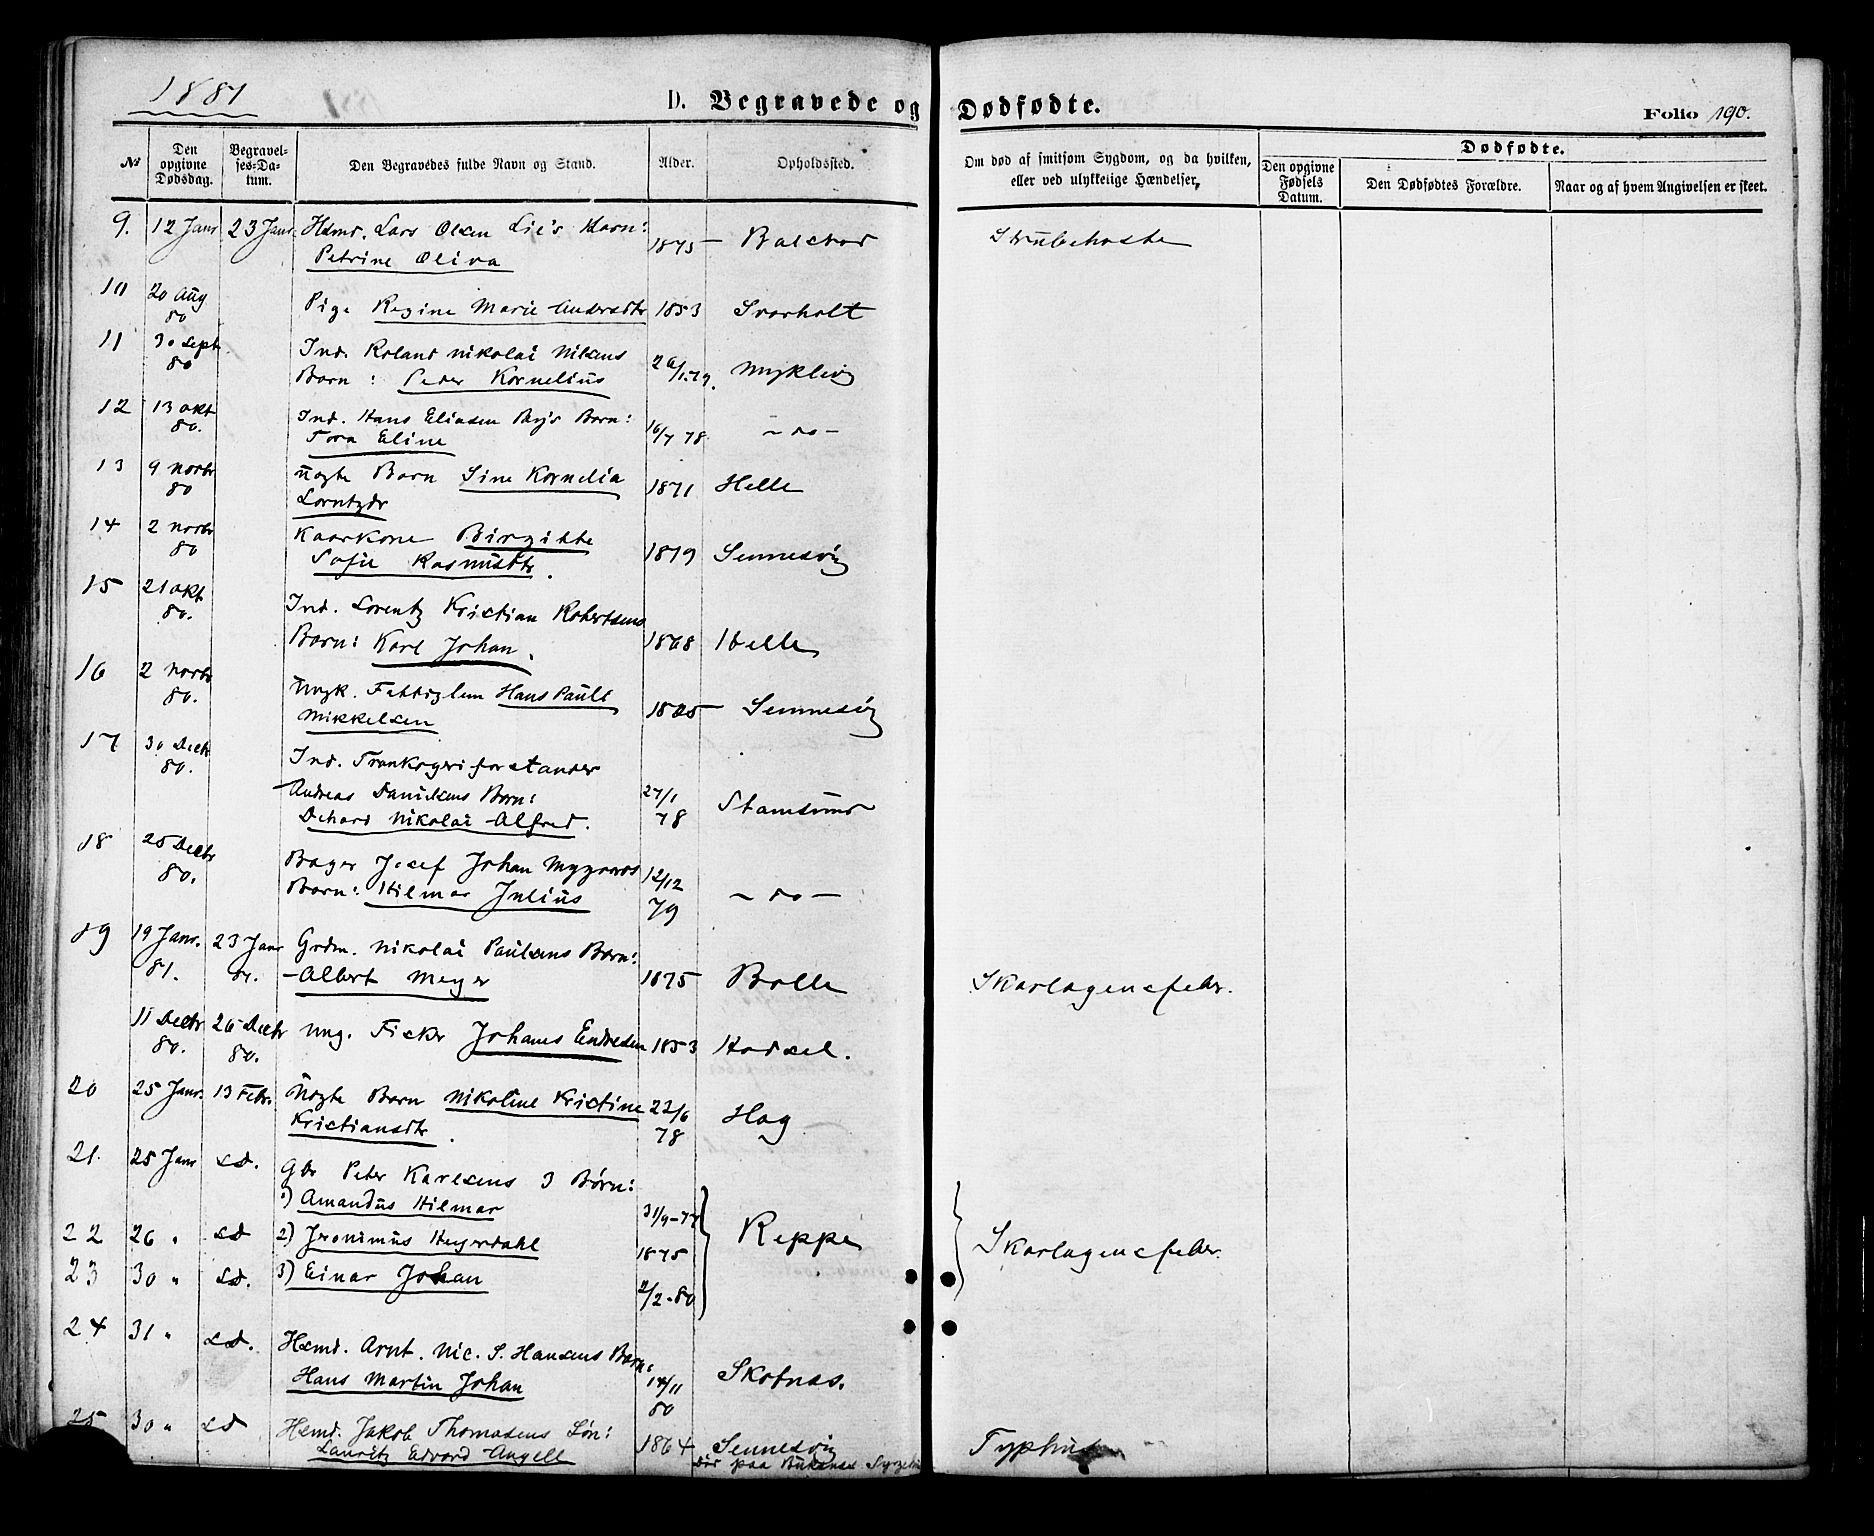 1881
D. Begravede og Dødfødte.
Folio 190.
№
Den opgivne Dødsdag.
Begravelses-Datum.
Den Begravedes fulde Navn og Stand.
Alder.
Opholdssted.
Om død af smitsom Sygdom, og da hvilken, eller ved ulykkelige Hændelser,
Dødfødte.
Den opgivne Fødsels Datum.
Den Dødfødtes Forældre.
Naar og af hvem Angivelsen er skeet.
9. 12 Janr 23 Janr Hsmd. Lars Olsen Lie's Barn: 1875 Balstad Strubehoste
Petrine Oliva
10 20 Aug 80 Pige Regine Marie Andersdtr 1853 Svarholt
11 30 Sept 80 Ind. Roland Nikolai Nilsens
Barn: Peder Kornelius Myklevig
12 13 okt 80. Ind. Hans Eliasen Bays Barn: 16/7 78. - do -
Tora Eline
13 9 novbr 80 uægte Barn Sine Kornelia 1871 Helle
Lorntzdr
14 2 novbr 80 Kaarkone Birgitte 1819 Sennesvig
Sofie Rasmusdtr.
15 21 okt 80. Ind. Lorentz Kristian Robertsens
Barn: Karl Johan. 1868 Helle
16 2 novbr 80. Ungk. Fattiglem Hans Paull 1805 Sennesvig
Mikkelsen
17 30 Decbr 80. Ind. Trankogeriforstander
Andreas Danielsens Barn: 27/1 78 Stamsund
Dehard Nikolai Alfred.
18 25 Decbr 80. Bager Josef Johan Myyraas 12/12 79 - do -
Barn: Hilmar Julius
19 19 Janr. 81. 23 Janr 81. Grdm. Nikolai Paulsens Barn:
Albert Meyer 1875 Bolle Skarlagensfeber.
11 Decbr 80. 26 Decbr 80. Ung. Fisker Johanes Endresen 1853 Hadsel.
20 25 Janr. 13 Febr. Uægte Barn Nikoline Kristine 22/6 78 Hag
Kristiansdtr.
21. 25 Janr s.D. Gbr Peter Karlsens 3 Børn:
1) Amandus Hilmar 31/9-77
22 26 " s.D 2) Jeronimus Heyerdahl 1875 Reppe Skarlagensfeber.
23 30 " s.D. 3) Einar Johan 2/2-80
24 31 " s.D. Hsmd. Arnt. Nic. S. Hansens Barn:
Hans Martin Johan 14/11 80 Skotnæs.
25 30 " s.D Hsmd. Jakob Thomasens Søn: 1864 Sennesvig Typhus
Lauritz Edvard Angell død paa Buksnes